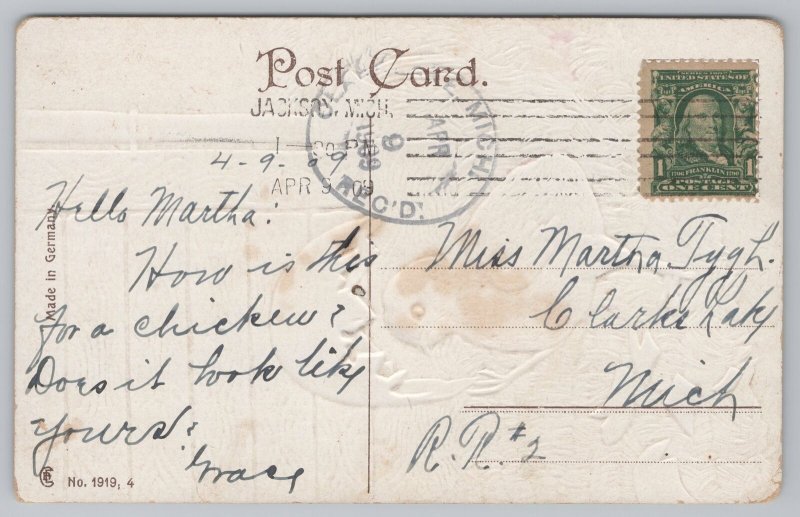 Post Card.
JACKSON, MICH.
1-30 PM
APR 9 09
APR
9
1909
REC'D.
SERIES 1902
UNITED STATES OF
AMERICA
1 FRANKLIN 1
POSTAGE
ONE CENT
4-9-09
Hello Martha!
How is this
for a chicken?
Does it look like
yours?
Grace
Miss Martha Tygh.
Clarks Lake
Mich
R.R. #2
Made in Germany
No. 1919, 4